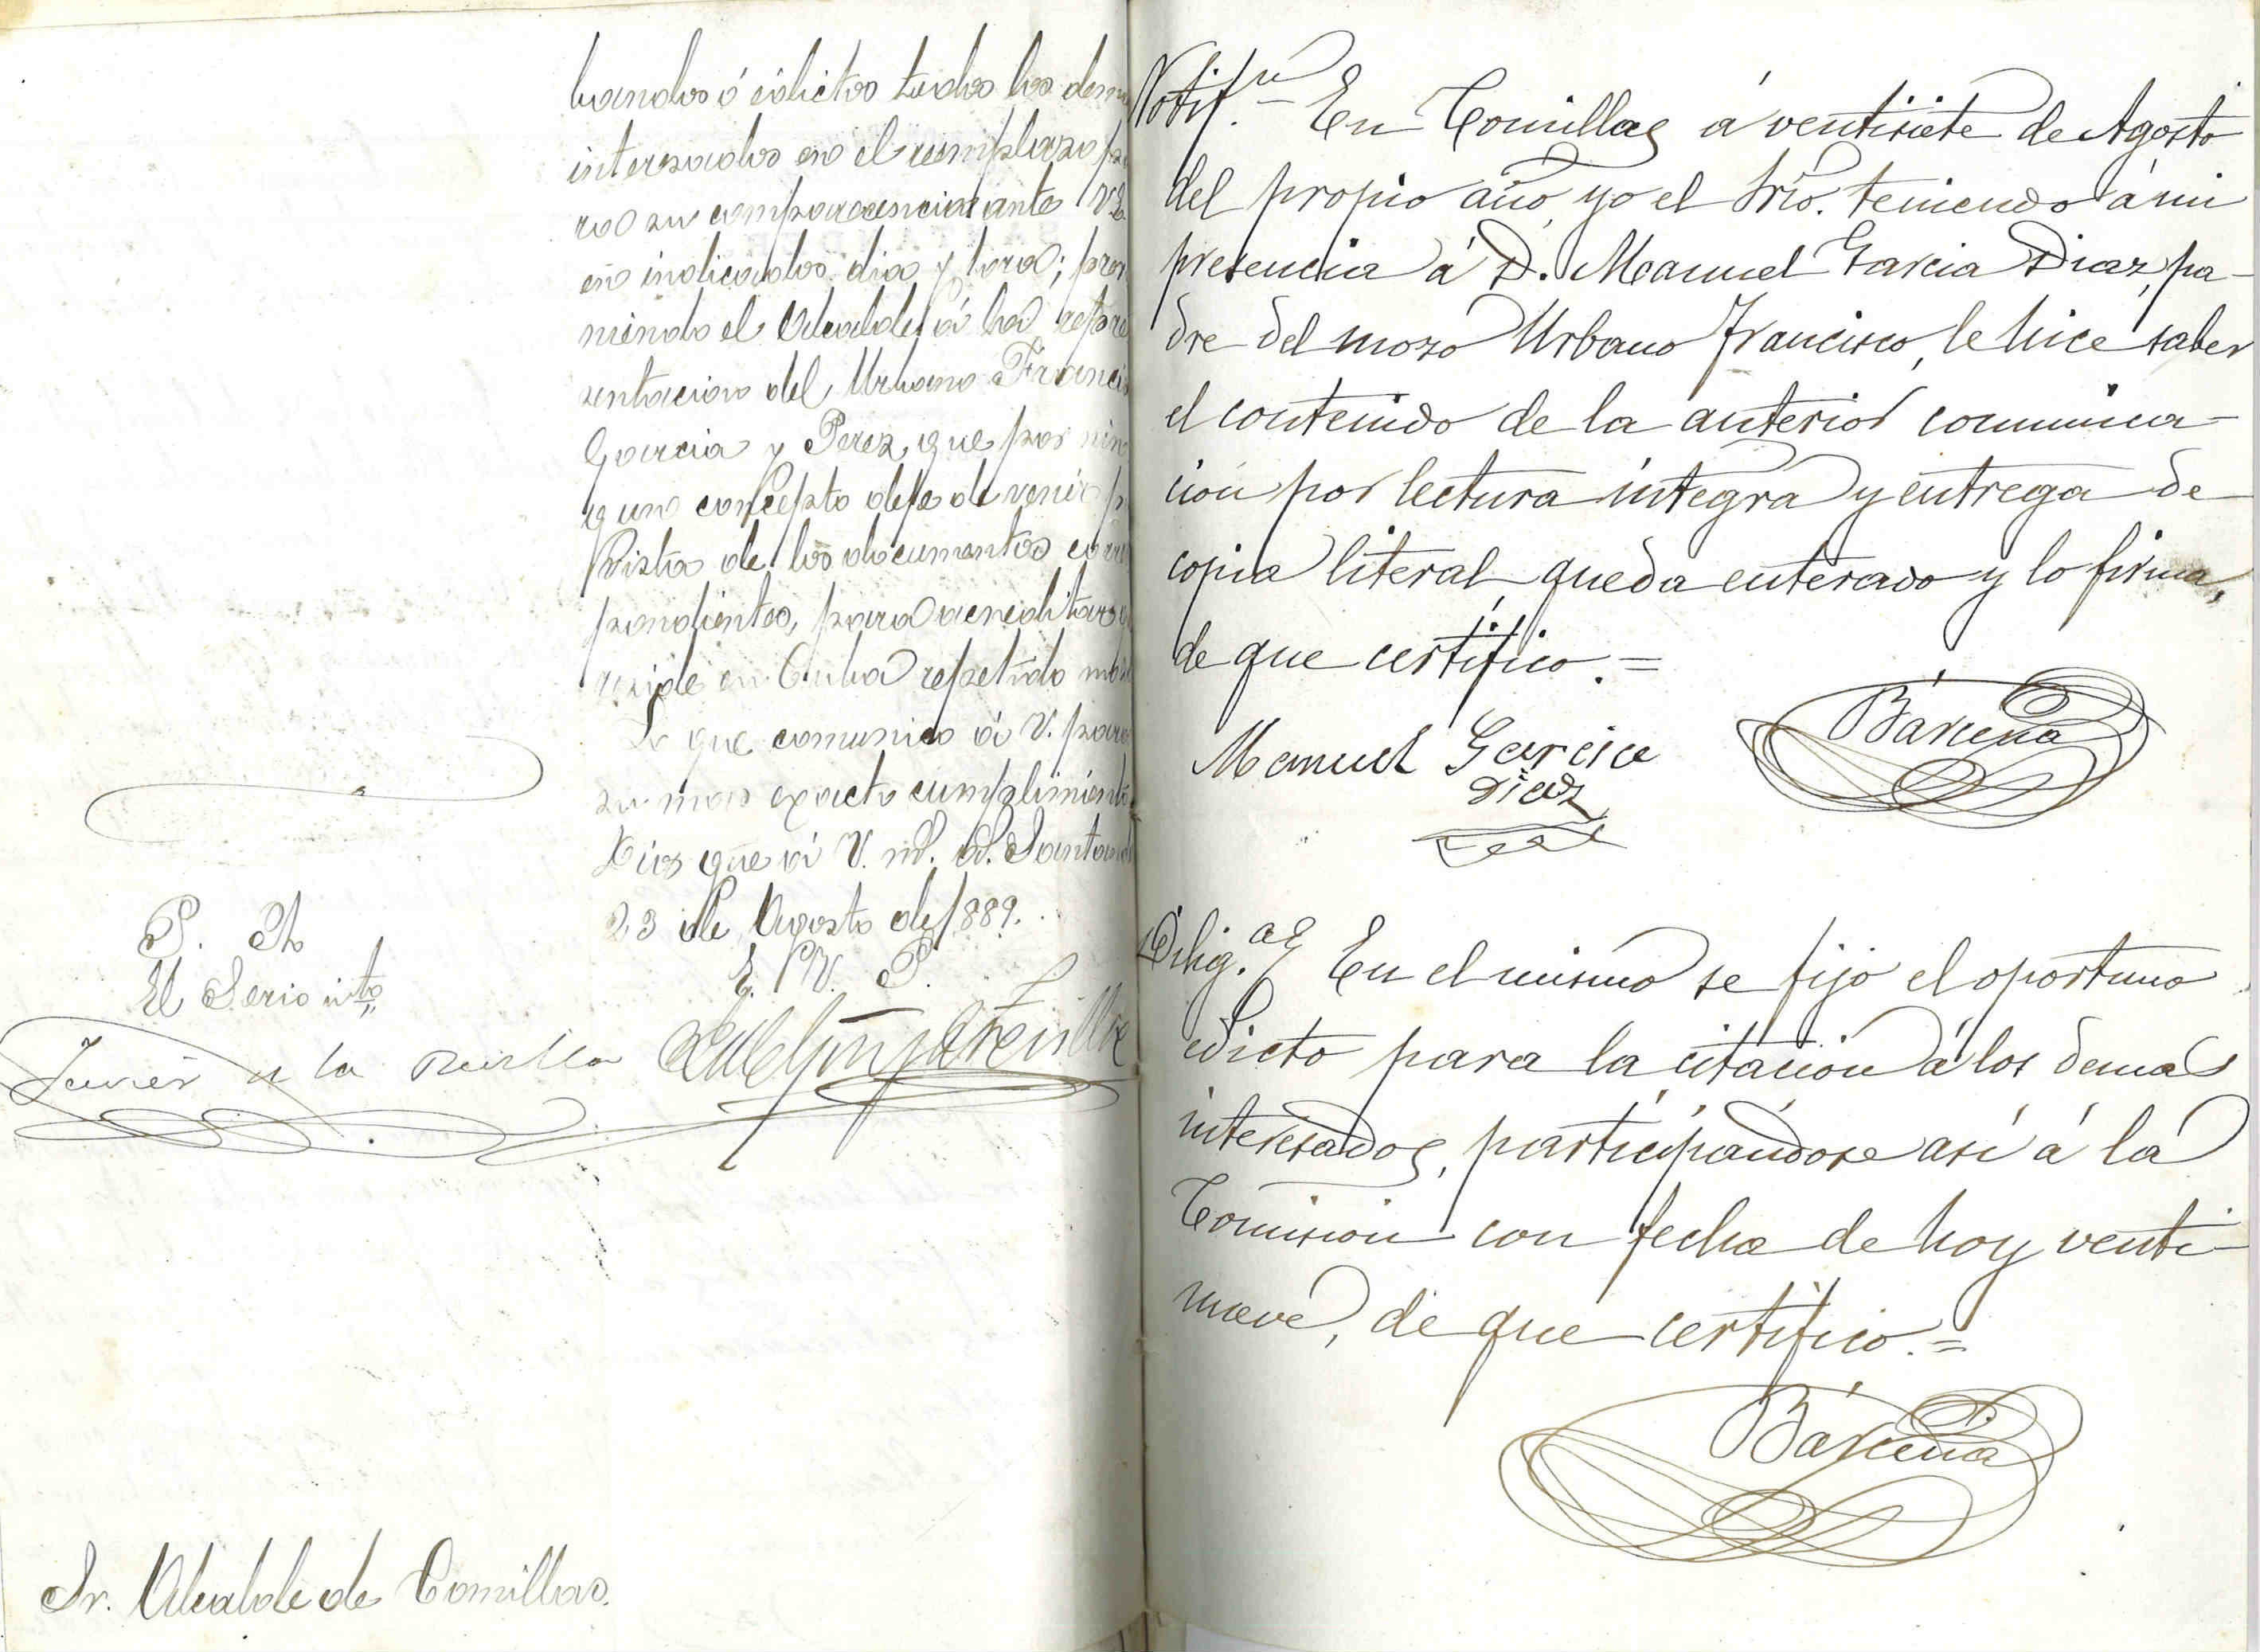 bandos ó edictos todos los dem
interesados en el reemplazo pa
ra su comparecencia ante
en indicados dia y hora; pre
niendo el Alcalde á la repre
sentacion del Urbano Francis
Garcia y Perez que por nin
gun concepto deje de venir p
vista de los documentos corre
pondientes, para acreditar q
reside en Cuba repetido mo
Lo que comunico á V. para
su mas exacto cumplimiento
Dios gue á V. m. a. Santand
23 de Agosto de 1889.
E. V. P.
P. A.
El Serio into
Sr. Alcalde de Comillas.
Notif.n En Comillas á ventisiete de Agosto
del propio año, yo el Srio. teniendo á mi
presencia á D. Manuel Garcia Diaz, pa-
dre del mozo Urbano Francisco, le hice saber
el contenido de la anterior comunica-
ción por lectura íntegra y entrega de
copia literal, queda enterado y lo firma,
de que certifico.=
Manuel Garcia
Diaz
Bárcena
Dilig.a En el mismo se fijo el oportuno
edicto para la citación á los demas
interesados, participándose así á la
Comision con fecha de hoy venti-
nueve, de que certifico.=
Bárcena